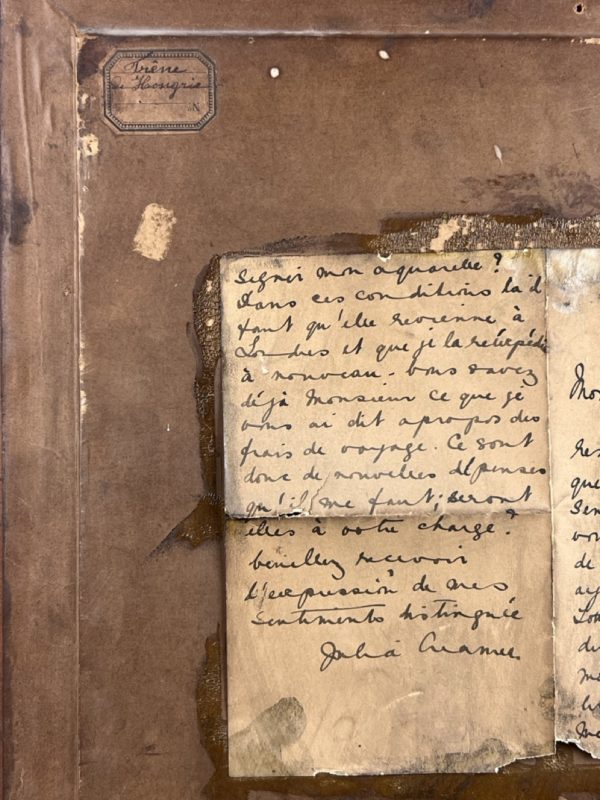 de Hongrie
signer mon aquarelle ?
Dans ces conditions là il
faut qu'elle revienne à
Londres et que je la réexpédie
à nouveau. vous savez
déjà Monsieur ce que je
vous ai dit apropos des
frais de voyage. Ce sont
donc de nouvelles dépenses
qu'il me faut ; seront
elles à votre charge ?
Veuillez recevoir
l'expression de mes
sentiments distinguée
Julia
res
que
vou
de